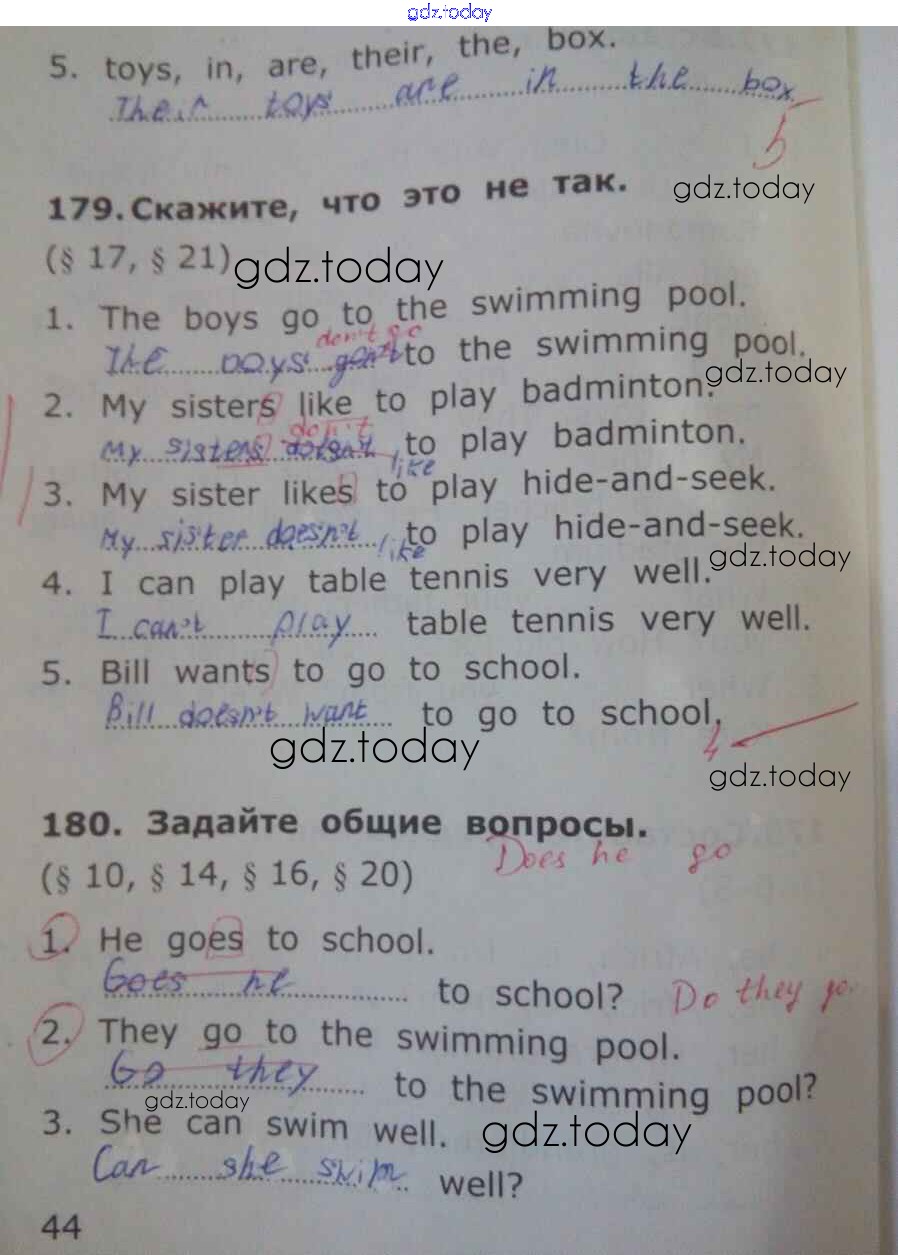 gdz.today
5. toys, in, are, their, the, box.
Their toys are in the box
5
179. Скажите, что это не так.
gdz.today
(§ 17, § 21)
gdz.today
1. The boys go to the swimming pool.
don't go
The boys to the swimming pool.
gdz.today
2. My sisters like to play badminton.
don't
My sisters doesn't to play badminton.
like
3. My sister likes to play hide-and-seek.
My sister doesn't to play hide-and-seek.
like
gdz.today
4. I can play table tennis very well.
I can't play table tennis very well.
5. Bill wants to go to school.
Bill doesn't want to go to school.
4
gdz.today
gdz.today
180. Задайте общие вопросы.
Does he go
(§ 10, § 14, § 16, § 20)
1. He goes to school.
Goes he to school? Do they go
2. They go to the swimming pool.
Go they to the swimming pool?
gdz.today
3. She can swim well.
gdz.today
Can she swim well?
44